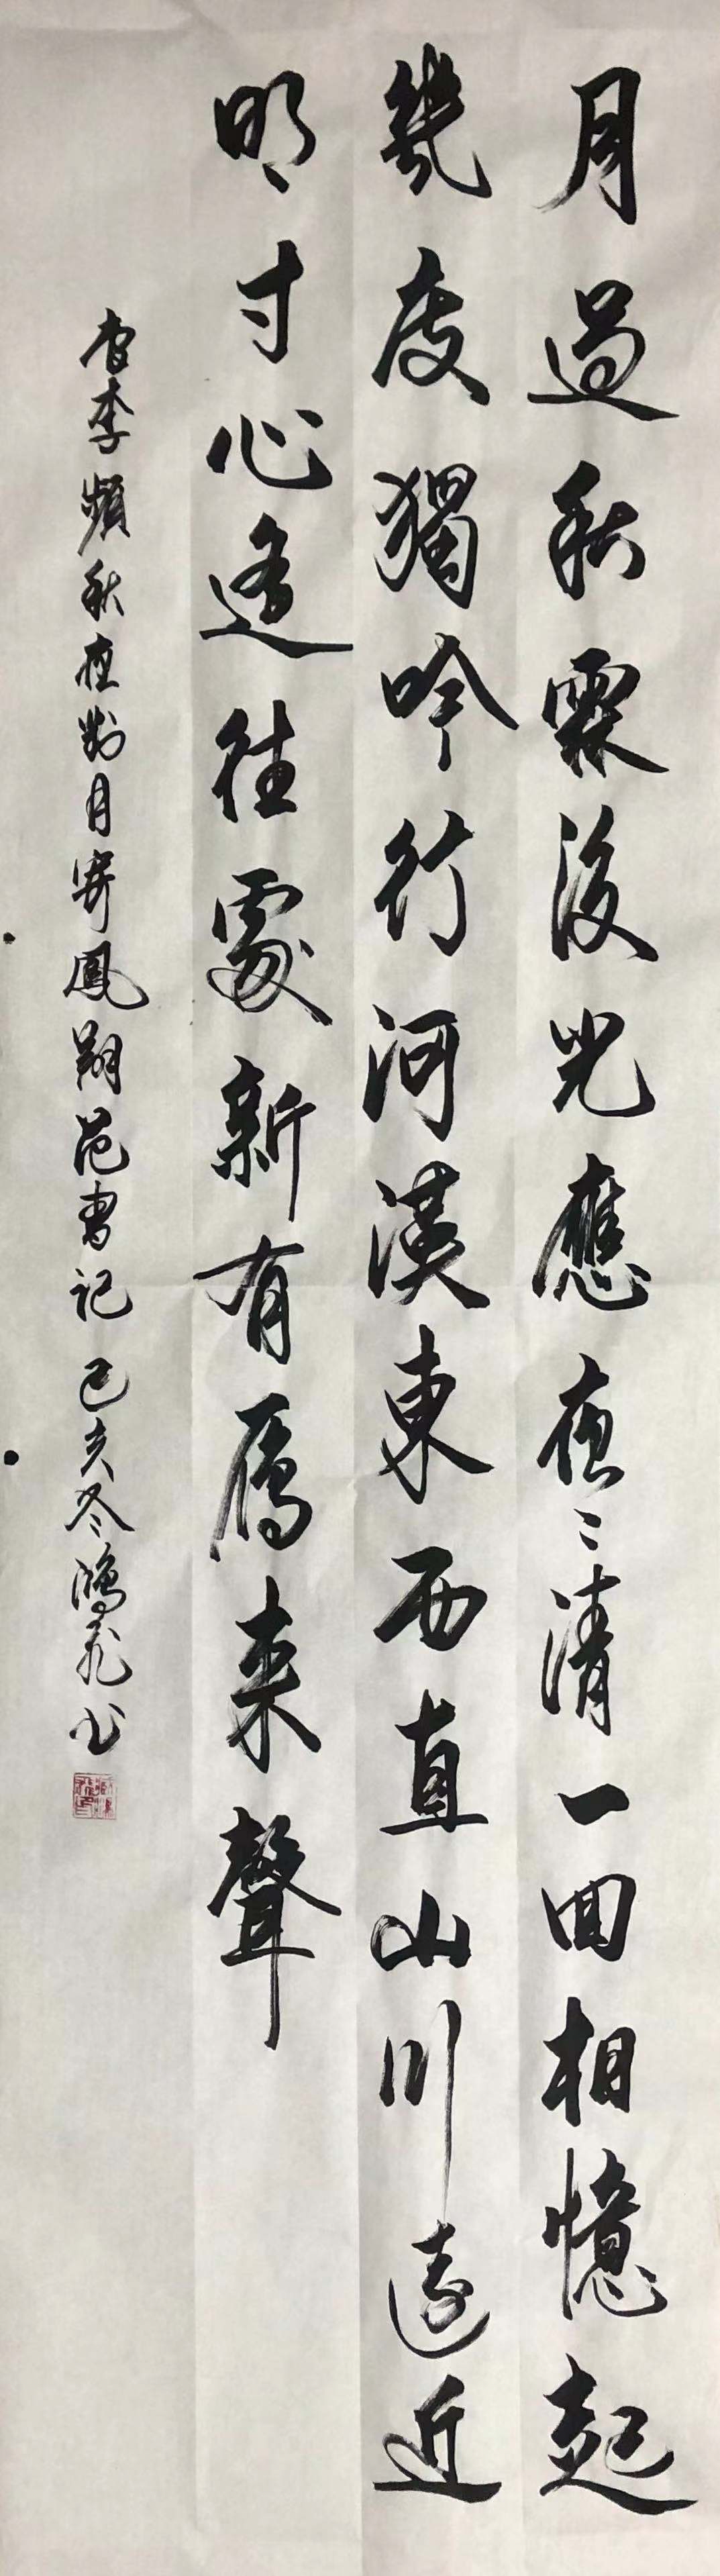 月過秋霖後光應夜〻清一回相憶起
幾度獨吟行河漢東西直山川遠近
明寸心遙往處新有雁来聲
唐李頻秋夜對月寄鳳翔范書記 己亥冬鴻飛书